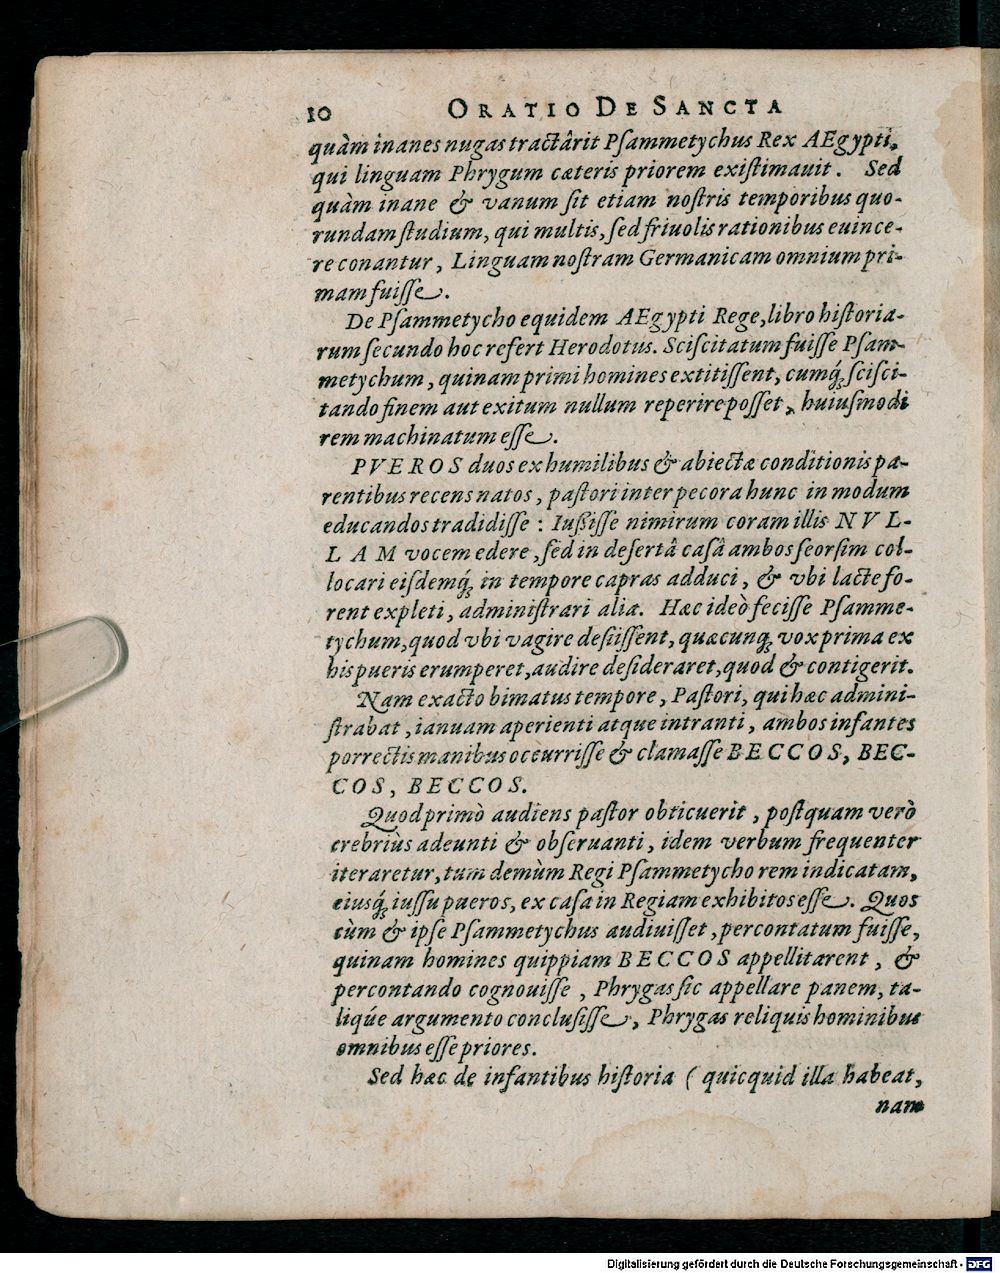 10 ORATIO DE SANCTA
quàm inanes nugas tractârit Pſammetychus Rex AEgypti,
qui linguam Phrygum cæteris priorem exiſtimauit. Sed
quàm inane & vanum ſit etiam noſtris temporibus quo-
rundam ſtudium, qui multis, ſed friuolis rationibus euince-
re conantur, Linguam noſtram Germanicam omnium pri-
mam fuiſſe.
De Pſammetycho equidem AEgypti Rege, libro hiſtoria-
rum ſecundo hoc refert Herodotus. Sciſcitatum fuiſſe Pſam-
metychum, quinam primi homines extitiſſent, cumq́; ſciſci-
tando finem aut exitum nullum reperire poſſet, huiuſmodi
rem machinatum eſſe.
PVEROS duos ex humilibus & abiectæ conditionis pa-
rentibus recens natos, paſtori inter pecora hunc in modum
educandos tradidiſſe: Iußiſſe nimirum coram illis NVL-
LAM vocem edere, ſed in deſertâ caſâ ambos ſeorſim col-
locari eiſdemq́; in tempore capras adduci, & vbi lacte fo-
rent expleti, adminiſtrari alia. Hæc ideò feciſſe Pſamme-
tychum, quod vbi vagire deſiiſſent, quæcunq; vox prima ex
his pueris erumperet, audire deſideraret, quod & contigerit.
Nam exacto bimatus tempore, Paſtori, qui hæc admini-
ſtrabat, ianuam aperienti atque intranti, ambos infantes
porrectis manibus occurriſſe & clamaſſe BECCOS, BEC-
COS, BECCOS.
Quod primò audiens paſtor obticuerit, poſtquam verò
crebriùs adeunti & obſeruanti, idem verbum frequenter
iteraretur, tum demùm Regi Pſammetycho rem indicatam,
eiusq́; iuſſu pueros, ex caſa in Regiam exhibitos eſſe. Quos
cùm & ipſe Pſammetychus audiuiſſet, percontatum fuiſſe,
quinam homines quippiam BECCOS appellitarent, &
percontando cognouiſſe, Phrygas ſic appellare panem, ta-
liq́ue argumento concluſiſſe, Phrygas reliquis hominibus
omnibus eſſe priores.
Sed hæc de infantibus hiſtoria (quicquid illa habeat,
nam
Digitalisierung gefördert durch die Deutsche Forschungsgemeinschaft - DFG